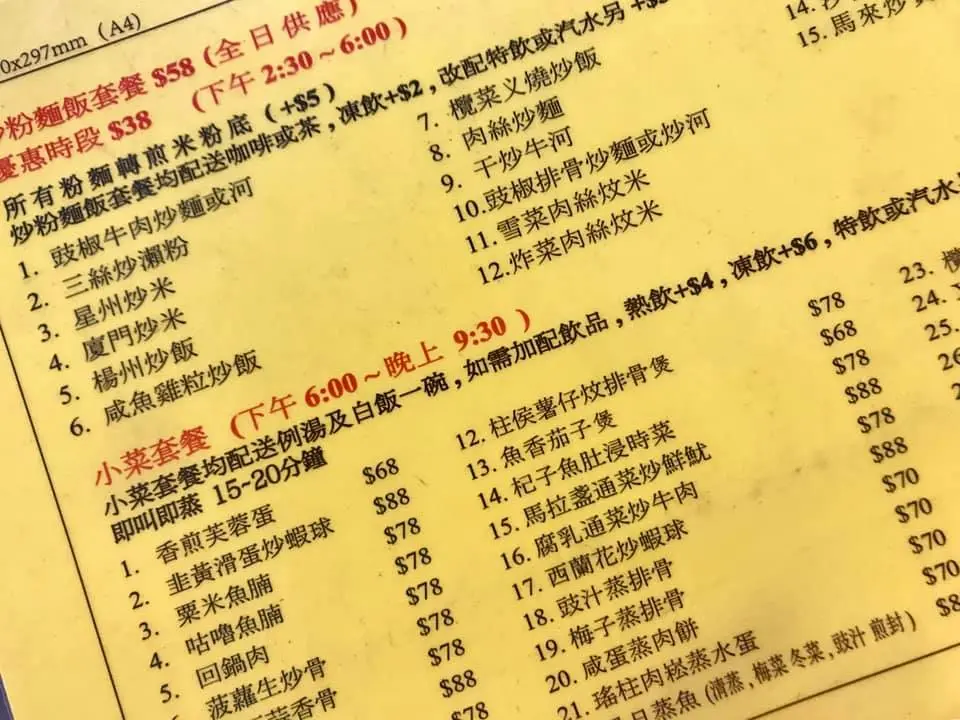 0x297mm (A4)
炒粉麵飯套餐 $58 (全日供應)
優惠時段 $38 (下午 2:30～6:00)
所有粉麵轉煎米粉底 (+$5)
炒粉麵飯套餐均配送咖啡或茶，凍飲+$2，改配特飲或汽水另
1. 豉椒牛肉炒麵或河
2. 三絲炒瀨粉
3. 星州炒米
4. 廈門炒米
5. 楊州炒飯
6. 咸魚雞粒炒飯
7. 欖菜义燒炒飯
8. 肉絲炒麵
9. 干炒牛河
10.豉椒排骨炒麵或炒河
11.雪菜肉絲炆米
12.炸菜肉絲炆米
14.
15. 馬來炒
小菜套餐 (下午 6:00～晚上 9:30)
小菜套餐均配送例湯及白飯一碗，如需加配飲品，熱飲+$4，凍飲+$6，特飲或汽水另
即叫即蒸 15~20分鐘
1. 香煎芙蓉蛋 $68
2. 韭黃滑蛋炒蝦球 $88
3. 粟米魚腩 $78
4. 咕嚕魚腩 $78
5. 回鍋肉 $78
菠蘿生炒骨 $78
蒜香骨 $78
$88
$78
12. 柱侯薯仔炆排骨煲 $78
13. 魚香茄子煲 $68
14. 杞子魚肚浸時菜 $78
15. 馬拉盞通菜炒鮮魷 $88
16. 腐乳通菜炒牛肉 $78
17. 西蘭花炒蝦球 $88
18. 豉汁蒸排骨 $70
19. 梅子蒸排骨 $70
20. 咸蛋蒸肉餅 $70
21. 瑤柱肉崧蒸水蛋 $70
日蒸魚 (清蒸，梅菜冬菜，豉汁 煎封) $8
23. 欖
24.
25.